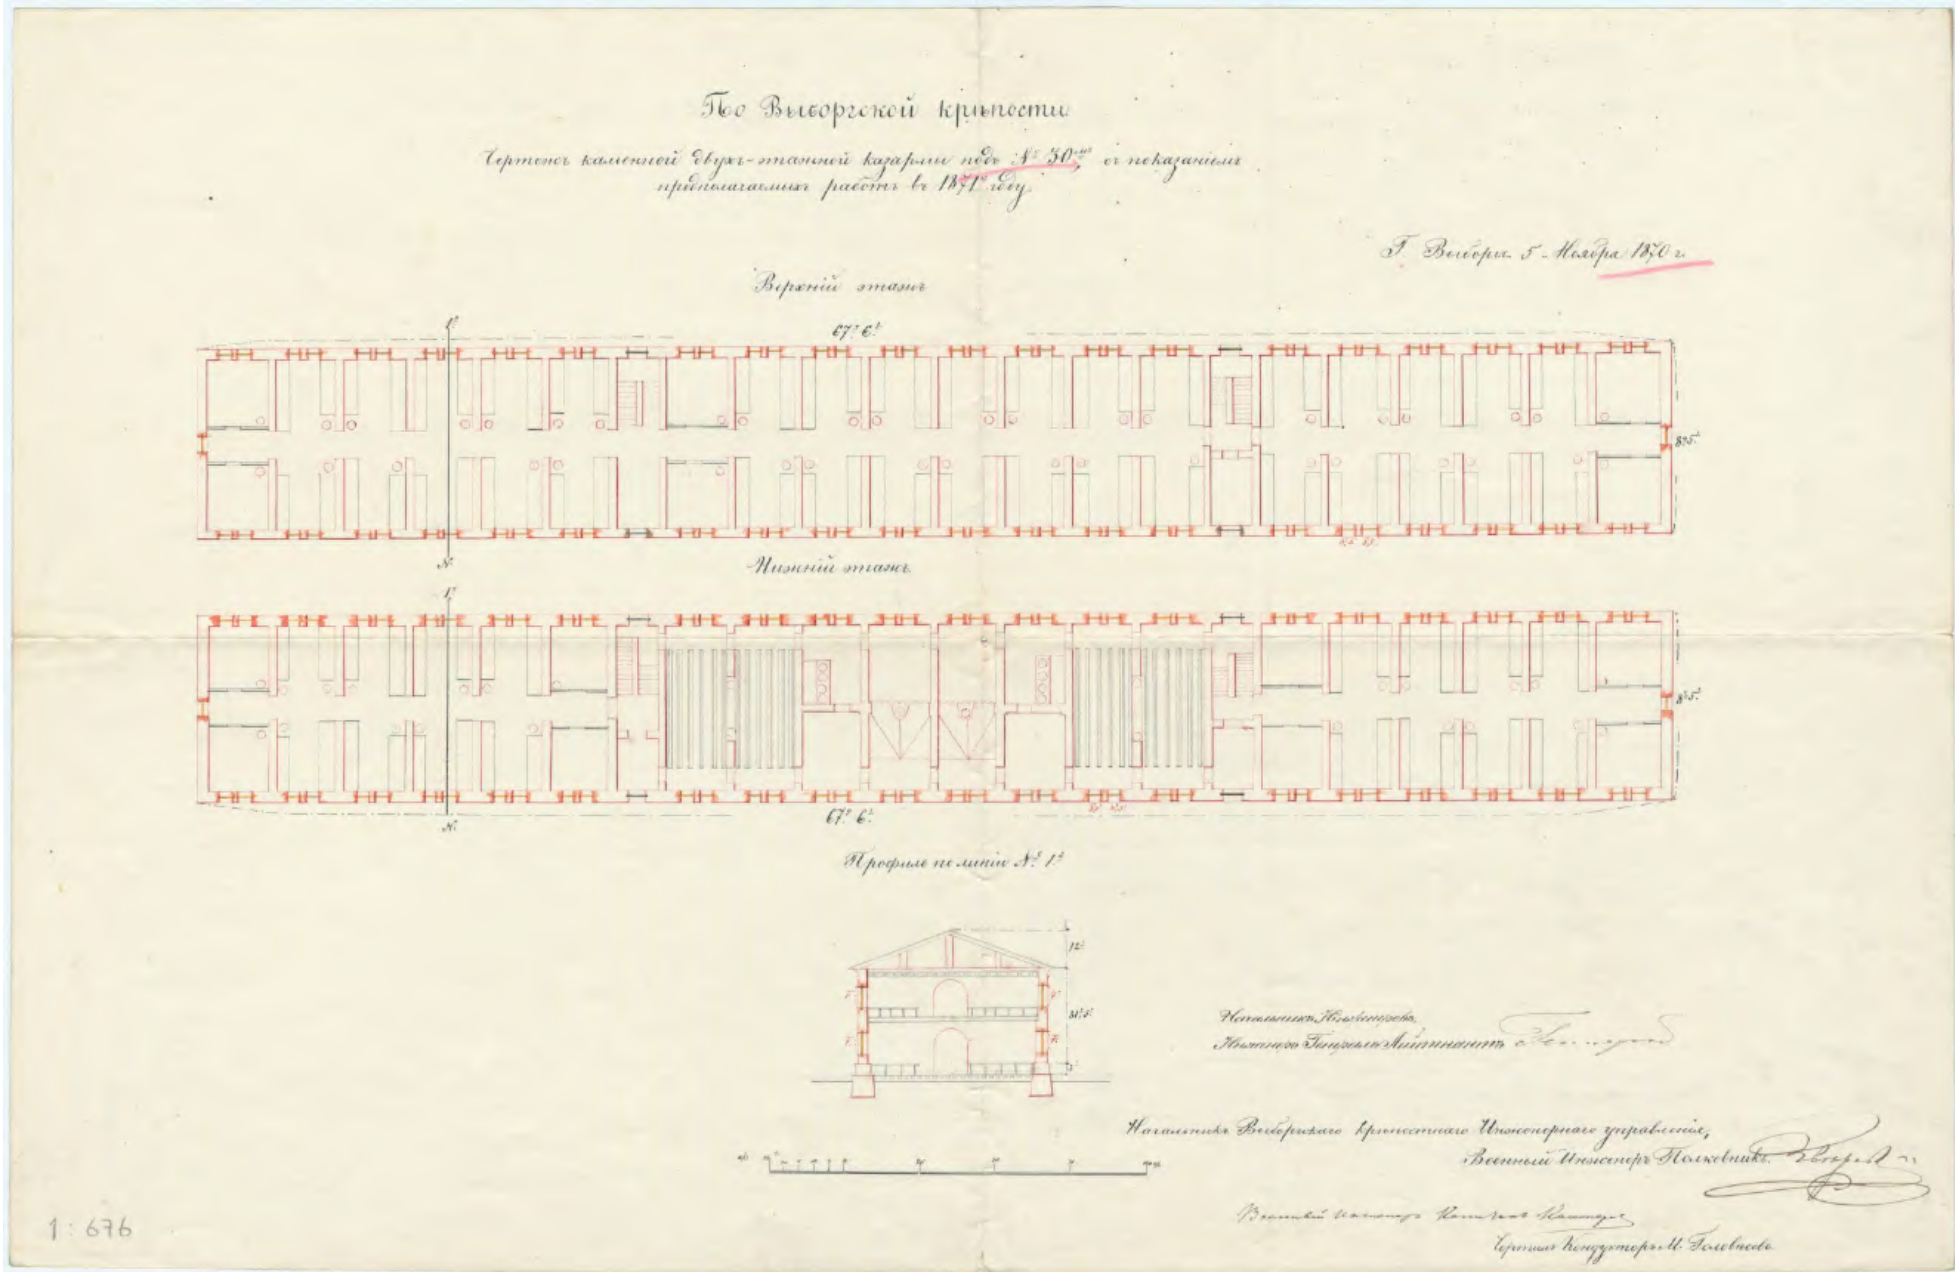 По Выборгской крѣпости
Чертежъ каменной двухъ-этажной казармы подъ № 30мъ съ показаніемъ
предполагаемыхъ работъ въ 1871 году.
Г. Выборгъ. 5 Ноября 1870 г.
Верхній этажъ
1º
67º 6'
8º 5'
N.
Нижній этажъ
1º
8º 5'
N.
67º 6'
Профиль по линіи № 1º
12'
31' 5"
3'
Начальникъ Инженеровъ,
Инженеръ Генералъ Лейтенантъ
Начальникъ Выборгскаго Крѣпостнаго Инженернаго управленія,
Военный Инженеръ Полковникъ
Военный Инженеръ
Чертилъ Кондукторъ М. Головневъ
1:676